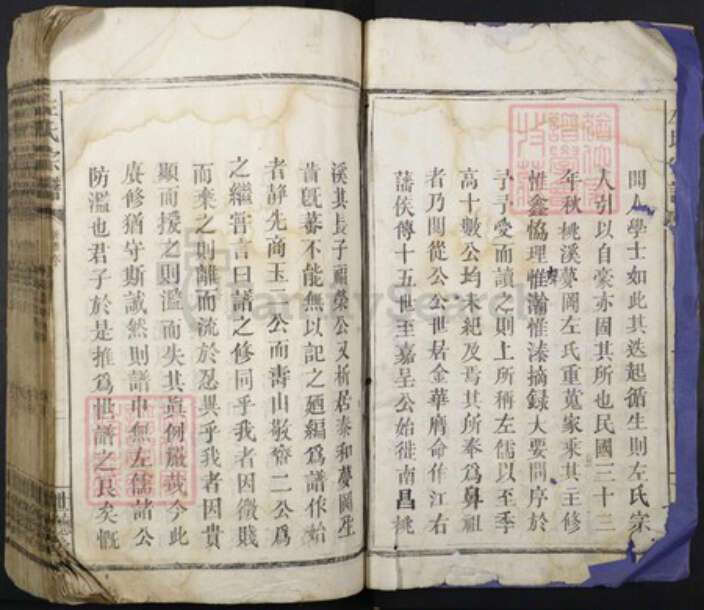 間人學士如此其迭起循生則左氏宗
人引以自豪亦固其所也民國三十二
年秋桃溪夢岡左氏重蒐家乘其主修
惟鑫恊理惟瀚惟溱摘録大要問序於
予予受而讀之則上所稱左儒以至季
高十數公均未紀及焉其所奉爲鼻祖
者乃閩從公公世居金華膺命作江右
藩侯傳十五世至嘉呈公始徙南昌桃
溪其長子福榮公又析居泰和夢岡生
旣蕃不能無以記之廼編爲譜作始
者静先商玉二公而壽山敬齋二公爲
之繼嘗言曰譜之修同乎我者因微賤
而棄之則離而流於忍異乎我者因貴
顯而援之則濫而失其眞例嚴哉今此
賡修猶守斯誡然則譜中無左儒諸公
防濫也君子於是推爲惟譜之良矣慨
左氏宗譜
FamilySearch